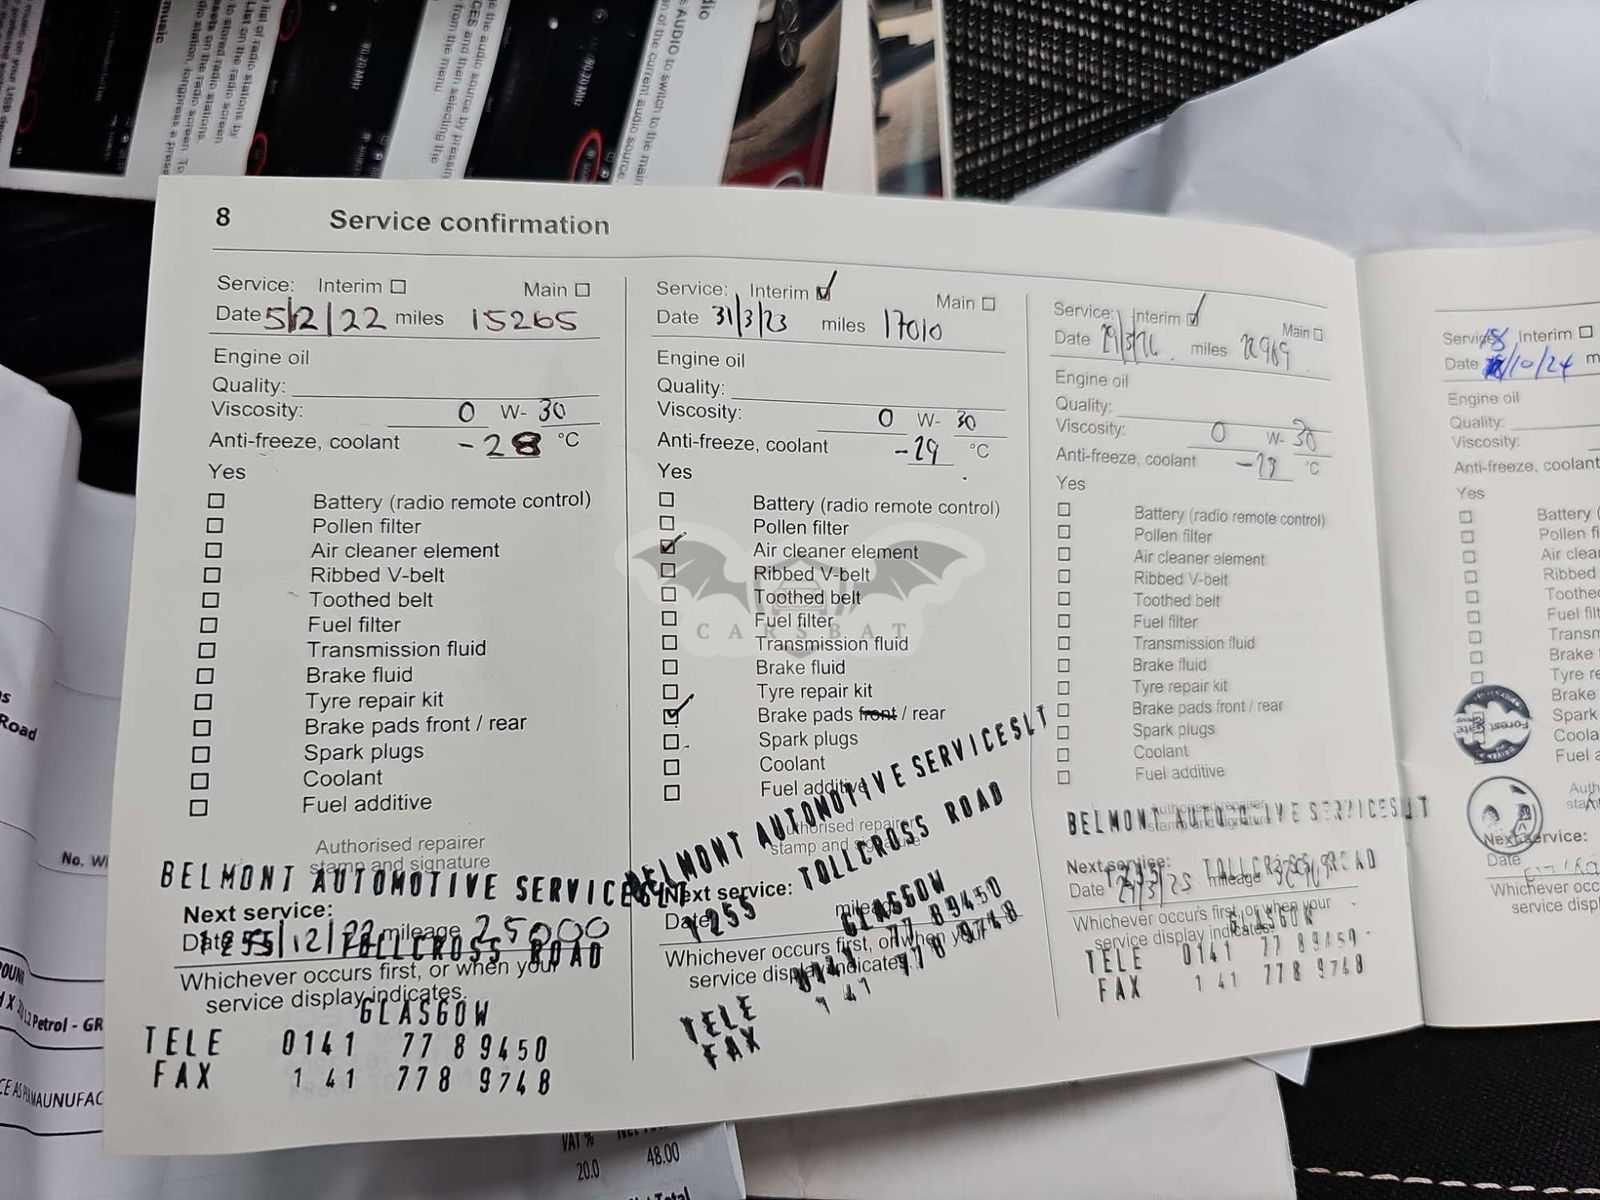 8 Service confirmation
Service: Interim Main
Date 5/12/22 miles 15265
Engine oil
Quality:
Viscosity: 0 W- 30
Anti-freeze, coolant -28 °C
Yes
Battery (radio remote control)
Pollen filter
Air cleaner element
Ribbed V-belt
Toothed belt
Fuel filter
Transmission fluid
Brake fluid
Tyre repair kit
Brake pads front / rear
Spark plugs
Coolant
Fuel additive
Authorised repairer
stamp and signature
BELMONT AUTOMOTIVE SERVICES
Next service:
Date /12/ mileage 25000
1255 TOLLCROSS ROAD
Whichever occurs first, or when your
service display indicates.
GLASGOW
TELE 0141 77 89450
FAX 1 41 778 9748
Service: Interim Main
Date 31/3/23 miles 17010
Engine oil
Quality:
Viscosity: 0 W- 30
Anti-freeze, coolant -29 °C
Yes
Battery (radio remote control)
Pollen filter
Air cleaner element
Ribbed V-belt
Toothed belt
Fuel filter
CARSBAT
Transmission fluid
Brake fluid
Tyre repair kit
Brake pads front / rear
Spark plugs
Coolant
Fuel additive
Authorised repairer
stamp and signature
BELMONT AUTOMOTIVE SERVICESLT
Next service:
Date mileage
1255 TOLLCROSS ROAD
Whichever occurs first, or when your
service display indicates.
GLASGOW
TELE 0141 77 89450
FAX 1 41 778 9748
Service: Interim Main
Date miles
Engine oil
Quality:
Viscosity: 0 W- 30
Anti-freeze, coolant °C
Yes
Battery (radio remote control)
Pollen filter
Air cleaner element
Ribbed V-belt
Toothed belt
Fuel filter
Transmission fluid
Brake fluid
Tyre repair kit
Brake pads front / rear
Spark plugs
Coolant
Fuel additive
Authorised repairer
stamp and signature
BELMONT SERVICESLT
Next service: TOLLCROSS ROAD
Date 29/3/25 mileage
Whichever occurs first, or when your
service display indicates.
GLASGOW
TELE 0141 77 89450
FAX 1 41 778 9748
Interim
Date /10/24
Engine oil
Quality:
Viscosity:
Anti-freeze, coolant
Yes
Battery
Pollen
Air
Ribbed
Toothed
Fuel
Brake
Tyre
Brake
Spark
Fuel
Forest Gate
Next service:
Date
Whichever
service
Road
No.
Petrol
VAT %
20.0 48.00
Total
list of radio stations by
list on the radio screen
to stored radio stations
the audio source by
and then selecting the
from the menu
AUDIO to switch to the main
of the current audio source